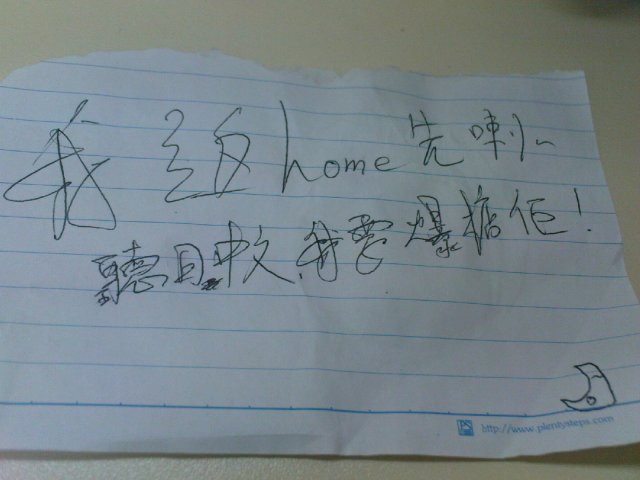 我返home先喇~
聽日中文,我要爆糖佢!
http://www.plentysteps.com